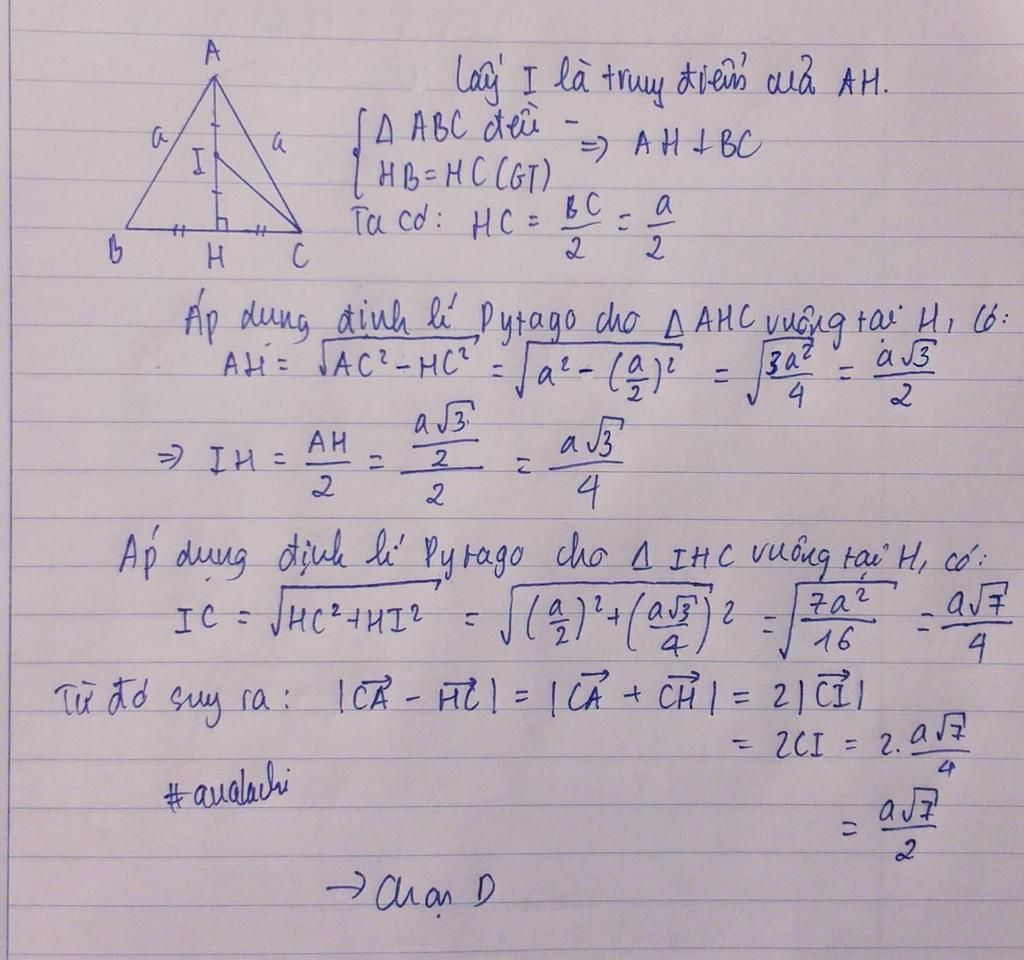 A
a
a
I
B
H
C
Lấy I là trung điểm của AH.
{ Δ ABC đều
HB = HC (GT) ⇒ AH ⊥ BC
Ta có: HC = BC/2 = a/2
Áp dụng định lí Pytago cho Δ AHC vuông tại H, có:
AH = √(AC² - HC²) = √(a² - (a/2)²) = √(3a²/4) = a√3/2
⇒ IH = AH/2 = (a√3/2)/2 = a√3/4
Áp dụng định lí Pytago cho Δ IHC vuông tại H, có:
IC = √(HC² + HI²) = √((a/2)² + (a√3/4)²) = √(7a²/16) = a√7/4
Từ đó suy ra: |CA⃗ - HC⃗| = |CA⃗ + CH⃗| = 2|CI⃗|
= 2CI = 2. a√7/4
= a√7/2
→ Chọn D